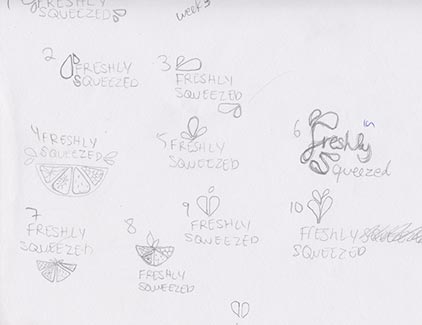 1 FRESHLY
SQUEEZED
week 3
2 FRESHLY
SQUEEZED
3
FRESHLY
SQUEEZED
4 FRESHLY
SQUEEZED
5
FRESHLY
SQUEEZED
6
Freshly
Squeezed
7
FRESHLY
SQUEEZED
8
FRESHLY
SQUEEZED
9
FRESHLY
SQUEEZED
10
FRESHLY
SQUEEZED